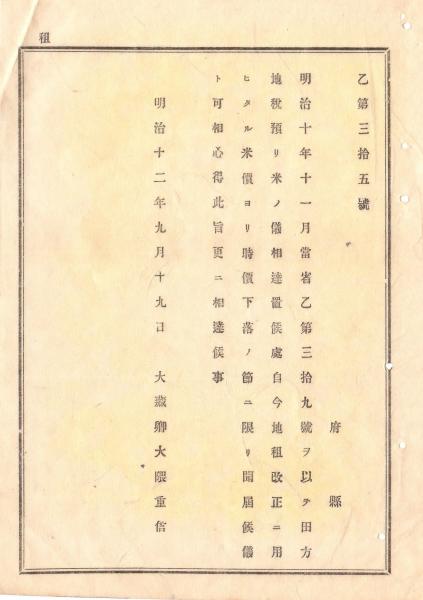 租
乙第三拾五號
府縣
明治十年十一月當省乙第三拾九號ヲ以テ田方
地稅預リ米ノ儀相達置候處自今地租改正ニ用
ヒタル米價ヨリ時價下落ノ節ニ限リ聞屆候儀
ト可相心得此旨更ニ相達候事
明治十二年九月十九日 大藏卿大隈重信